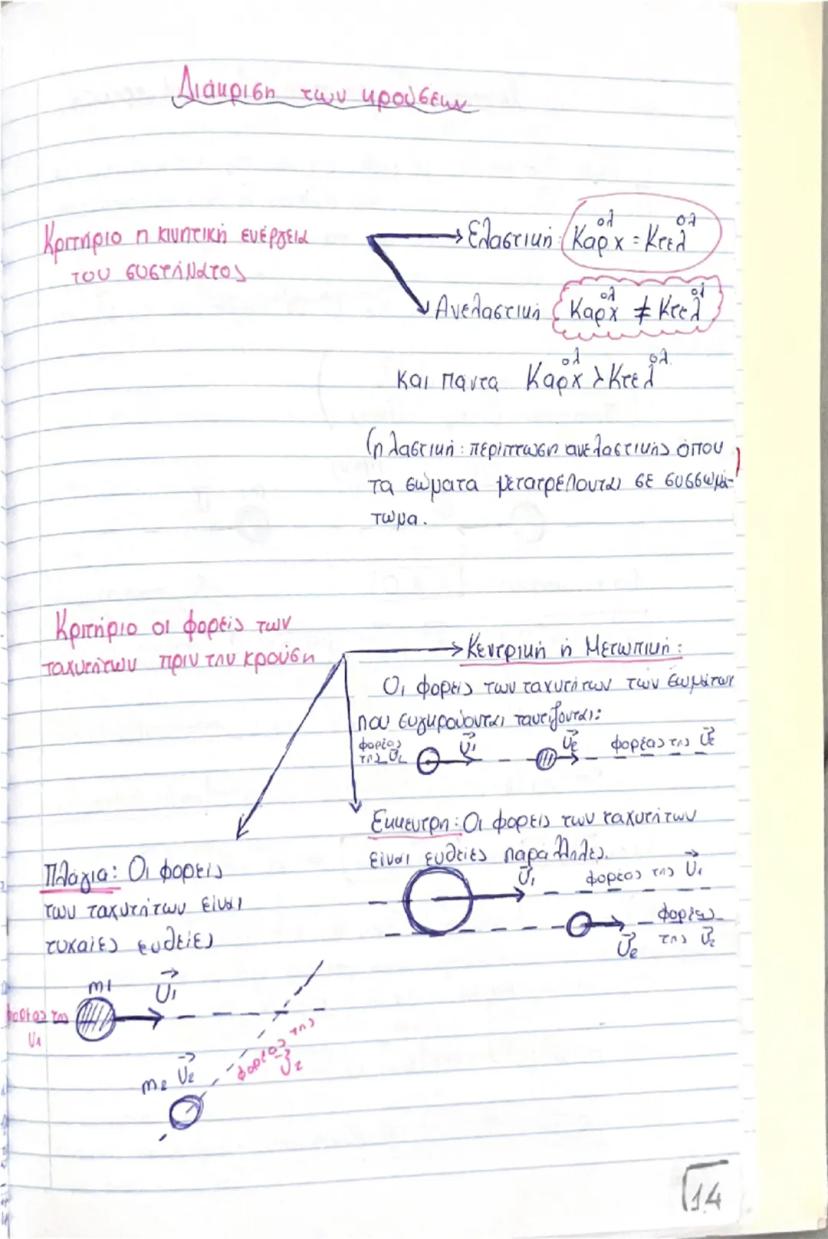 Διάκριση των κρούσεων
Κριτήριο η κινητική ενέργεια
του συστήματος
Ελαστική: Καρχ ολ = Κτελ ολ
Ανελαστική Καρχ ολ ≠ Κτελ ολ
και πάντα Καρχ ολ > Κτελ ολ
(πλαστική: περίπτωση ανελαστικής όπου
τα σώματα μετατρέπονται σε συσσωμά-
τωμα.)
Κριτήριο οι φορείς των
ταχυτήτων πριν την κρούση
Κεντρική ή Μετωπική:
Οι φορείς των ταχυτήτων των σωμάτων
που συγκρούονται ταυτίζονται:
φορέας
της υ1 υ1 υ2 φορέας της υ2
Έκκεντρη: Οι φορείς των ταχυτήτων
είναι ευθείες παράλληλες.
υ1 φορέας της υ1
υ2 φορέας
της υ2
Πλάγια: Οι φορείς
των ταχυτήτων είναι
τυχαίες ευθείες
m1 υ1
φορέας της
υ1
m2 υ2
φορέας της
υ2
14